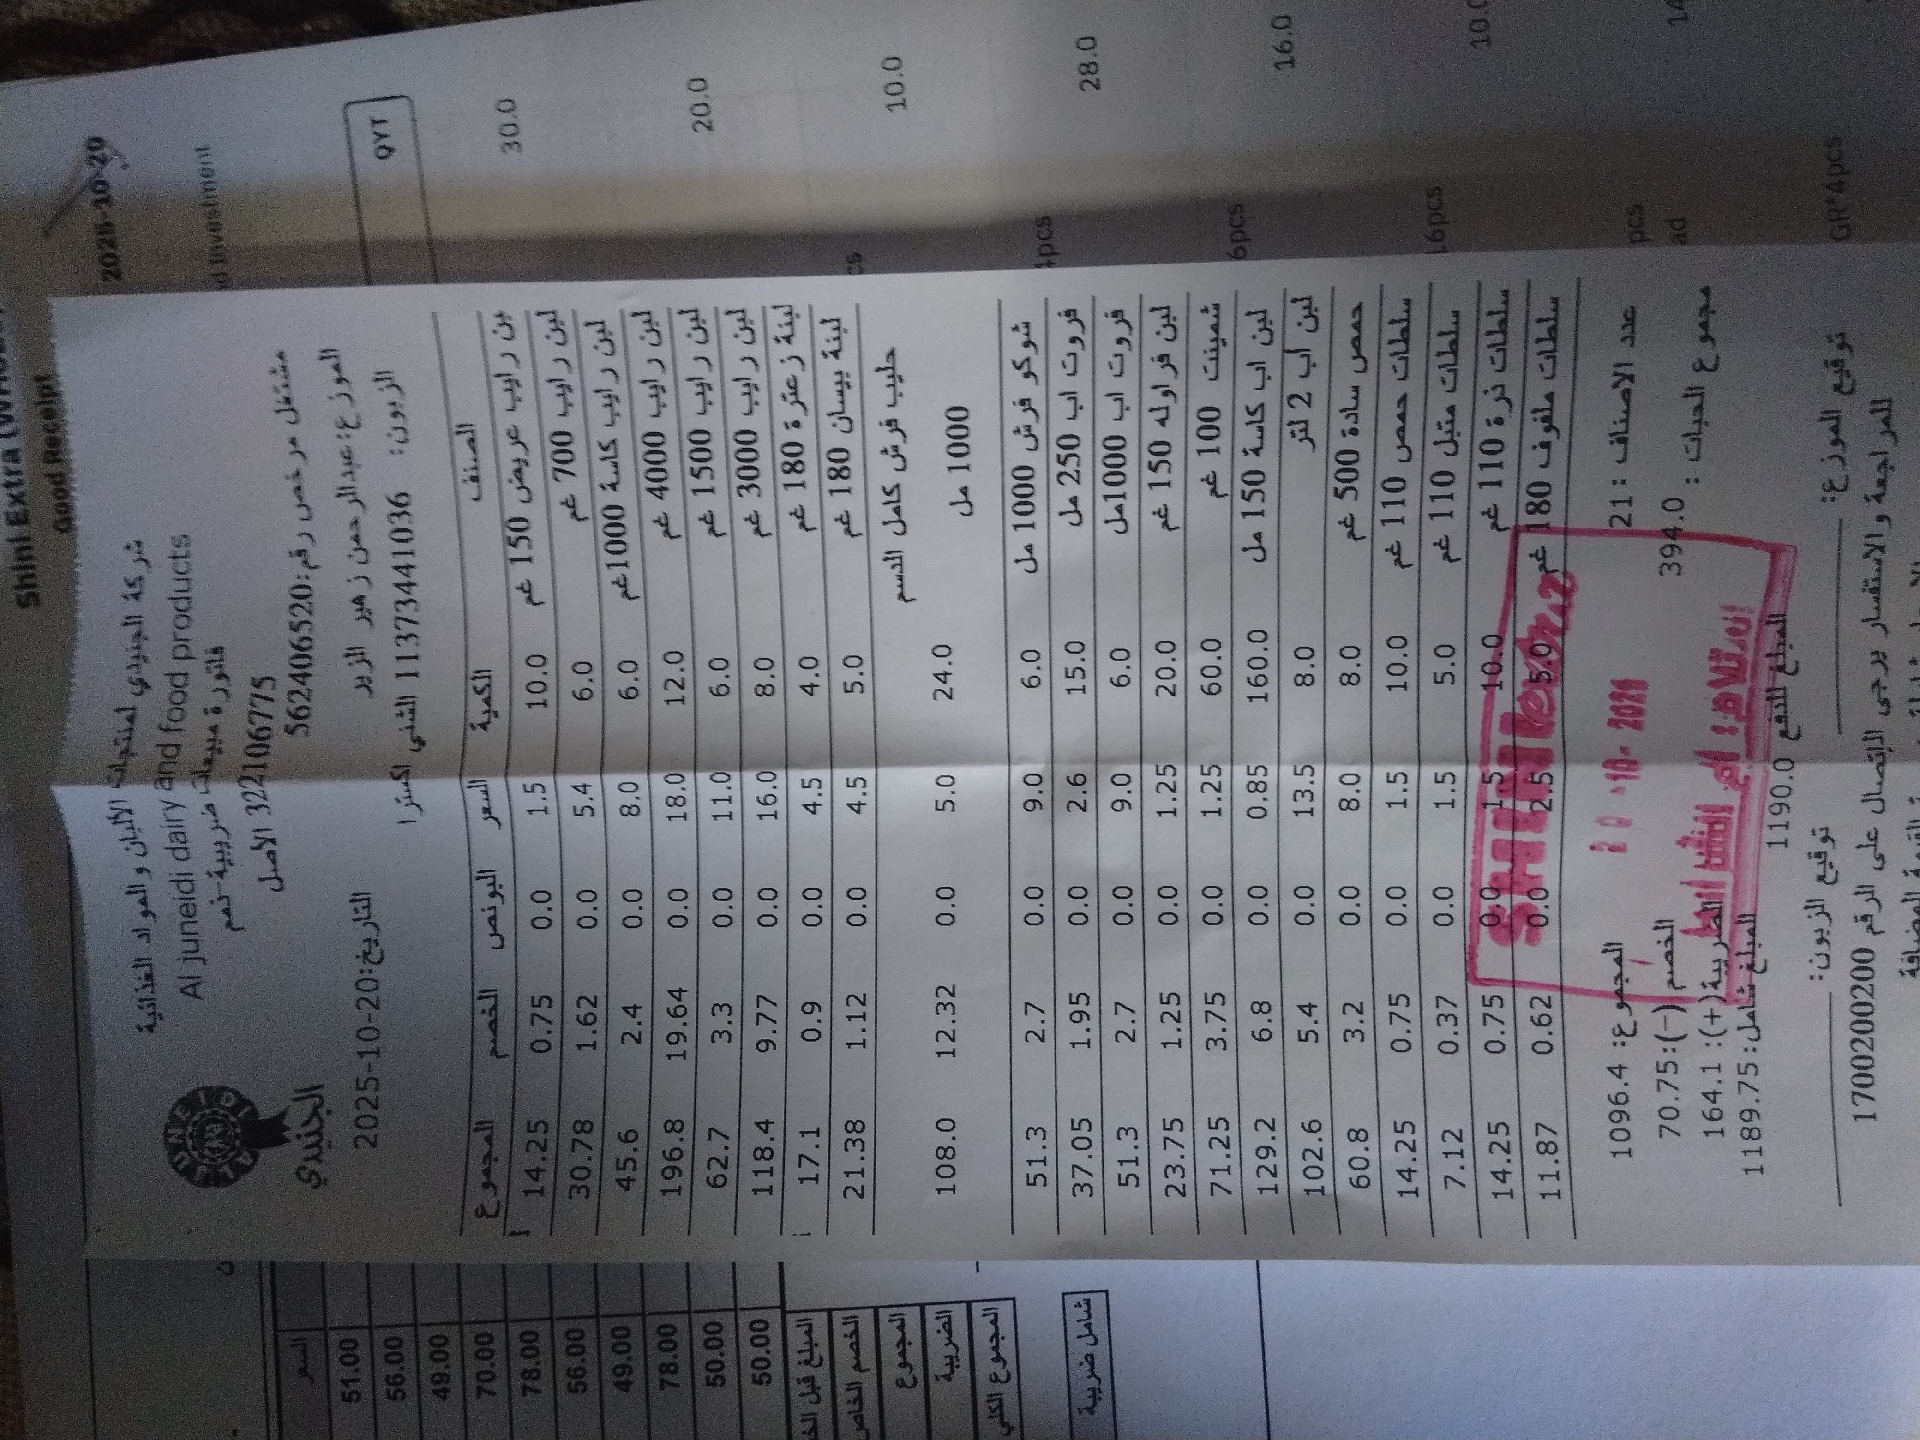 Good Receipt
2025-10-20
QYT
30.0
20.0
10.0
28.0
16.0
شركة الجنيدي لمنتجات الألبان والمواد الغذائية
Al juneidi dairy and food products
فاتورة مبيعات ضريبية-نعم
3221067775 الاصل
مشتغل مرخص رقم:562406520
الجنيدي
الموزع:عبدالرحمن زهير الزير
التاريخ:2025-10-20
الزبون: 11373441036 الشني اكسترا
الصنف الكمية السعر البونص الخصم المجموع
لبن رايب عريض 150 غم 10.0 1.5 0.0 0.75 14.25
لبن رايب 700 غم 6.0 5.4 0.0 1.62 30.78
لبن رايب كاسة 1000غم 6.0 8.0 0.0 2.4 45.6
لبن رايب 4000 غم 12.0 18.0 0.0 19.64 196.8
لبن رايب 1500 غم 6.0 11.0 0.0 3.3 62.7
لبن رايب 3000 غم 8.0 16.0 0.0 9.77 118.4
لبنة زعترة 180 غم 4.0 4.5 0.0 0.9 17.1
لبنة بيسان 180 غم 5.0 4.5 0.0 1.12 21.38
حليب فرش كامل الدسم
1000 مل 24.0 5.0 0.0 12.32 108.0
شوكو فرش 1000 مل 6.0 9.0 0.0 2.7 51.3
فروت اب 250 مل 15.0 2.6 0.0 1.95 37.05
فروت اب 1000مل 6.0 9.0 0.0 2.7 51.3
لبن فراوله 150 غم 20.0 1.25 0.0 1.25 23.75
شمينت 100 غم 60.0 1.25 0.0 3.75 71.25
لبن اب كاسة 150 مل 160.0 0.85 0.0 6.8 129.2
لبن اب 2 لتر 8.0 13.5 0.0 5.4 102.6
حمص سادة 500 غم 8.0 8.0 0.0 3.2 60.8
سلطات حمص 110 غم 10.0 1.5 0.0 0.75 14.25
سلطات متبل 110 غم 5.0 1.5 0.0 0.37 7.12
سلطات ذرة 110 غم 10.0 1.5 0.0 0.75 14.25
سلطات ملفوف 180 غم 5.0 2.5 0.0 0.62 11.87
عدد الاصناف : 21 المجموع: 1096.4
مجموع الحبات : 394.0 الخصم (-): 70.75
الضريبة(+): 164.1
المبلغ شامل: 1189.75
المبلغ للدفع 1190.0
توقيع الموزع: توقيع الزبون:
للمراجعة والاستفسار يرجى الاتصال على الرقم 1700200200
السعر
51.00
56.00
49.00
70.00
78.00
56.00
49.00
78.00
50.00
50.00
المبلغ قبل
الخصم الخاص
المجموع
الضريبة
المجموع الكلي
شامل ضريبة